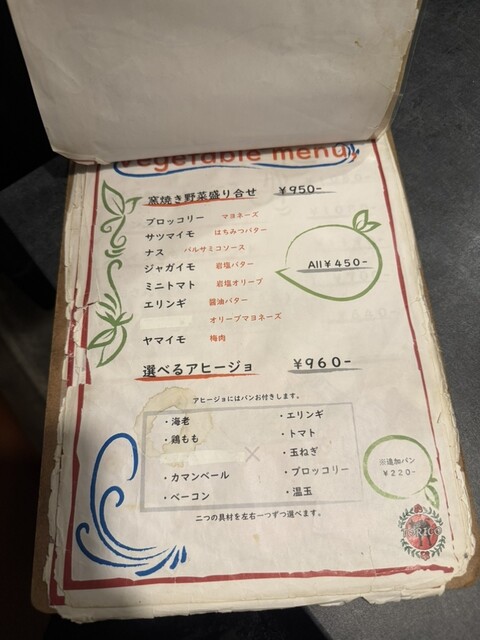 vegetable menu
窯焼き野菜盛り合せ ¥950-
ブロッコリー マヨネーズ
サツマイモ はちみつバター
ナス バルサミコソース
ジャガイモ 岩塩バター
ミニトマト 岩塩オリーブ
エリンギ 醤油バター
オリーブマヨネーズ
ヤマイモ 梅肉
All¥450-
選べるアヒージョ ¥960-
アヒージョにはパンお付きします。
・海老
・鶏もも
・カマンベール
・ベーコン
×
・エリンギ
・トマト
・玉ねぎ
・ブロッコリー
・温玉
二つの具材を左右一つずつ選べます。
※追加パン
¥220-